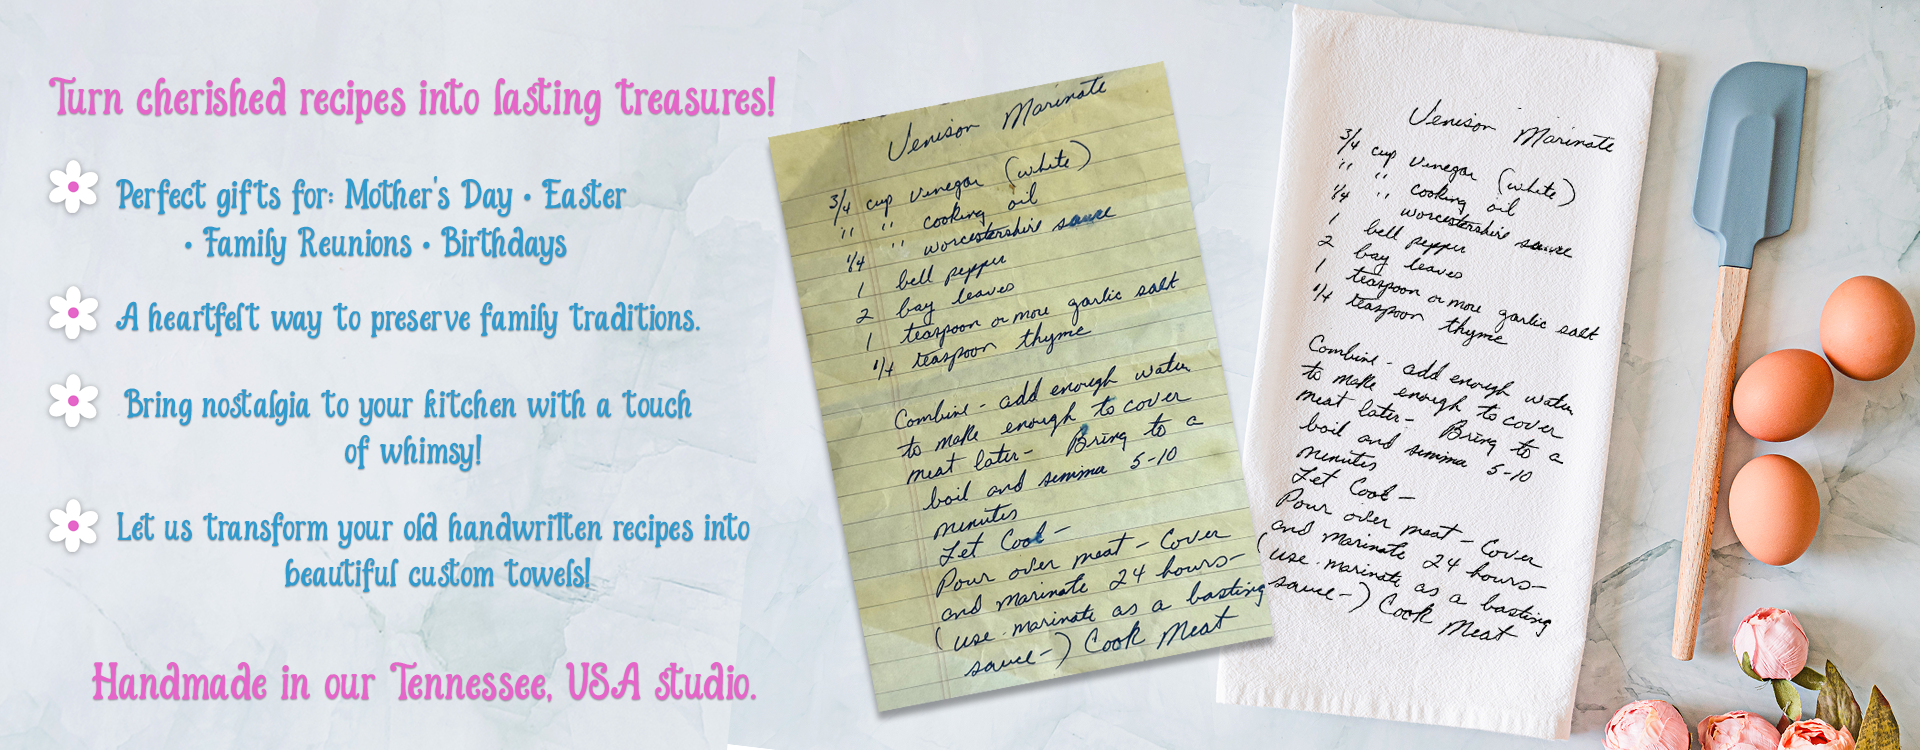 Turn cherished recipes into lasting treasures!
Perfect gifts for: Mother's Day • Easter
• Family Reunions • Birthdays
A heartfelt way to preserve family traditions.
Bring nostalgia to your kitchen with a touch
of whimsy!
Let us transform your old handwritten recipes into
beautiful custom towels!
Handmade in our Tennessee, USA studio.
Venison Marinate
3/4 cup vinegar (white)
" " cooking oil
1/4 " worcestershire sauce
1 bell pepper
2 bay leaves
1 teaspoon or more garlic salt
1/4 teaspoon thyme
Combine - add enough water
to make enough to cover
meat later - Bring to a
boil and simmer 5-10
minutes
Let Cool -
Pour over meat - Cover
and marinate 24 hours -
(use marinate as a basting
sauce -) Cook Meat
Venison Marinate
3/4 cup vinegar (white)
" " cooking oil
1/4 " worcestershire sauce
1 bell pepper
2 bay leaves
1 teaspoon or more garlic salt
1/4 teaspoon thyme
Combine - add enough water
to make enough to cover
meat later - Bring to a
boil and simmer 5-10
minutes
Let Cool -
Pour over meat - Cover
and marinate 24 hours -
(use marinate as a basting
sauce -) Cook Meat